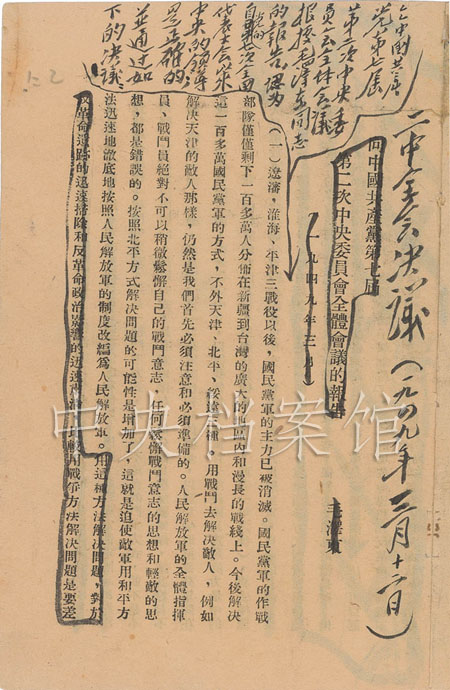 二中全会决议(一九四九年三月十三日)
中国共产
党第七届
第二次中央委
员会全体会议
根据毛泽东同志
的报告,认为
代表大会以来
中央的领导
是正确的
并通过如
下的决议:
向中國共產黨第七屆
第二次中央委員會全體會議的報告
一九四九年三月
毛澤東
(一)遼瀋,淮海、平津三戰役以後,國民黨軍的主力已被消滅。國民黨軍的作戰
部隊僅僅剩下一百多萬人分佈在新疆到台灣的廣大的地區內和漫長的戰綫上。今後解決
這一百多萬國民黨軍的方式,不外天津、北平、綏遠三種。用戰鬥去解決敵人,例如
解決天津的敵人那樣,仍然是我們首先必須注意和必須準備的。人民解放軍的全體指揮
員、戰鬥員絕對不可以稍微鬆懈自己的戰鬥意志,任何鬆懈戰鬥意志的思想和輕敵的思
想,都是錯誤的。按照北平方式解決問題的可能性是增加了,這就是迫使敵軍用和平方
法迅速地澈底地按照人民解放軍的制度改編爲人民解放軍。用這種方法解決問題,對於
反革命遺跡的迅速掃除和反革命政治影響的迅速肅清,比較用戰爭方法解決問題是要差
中央档案馆